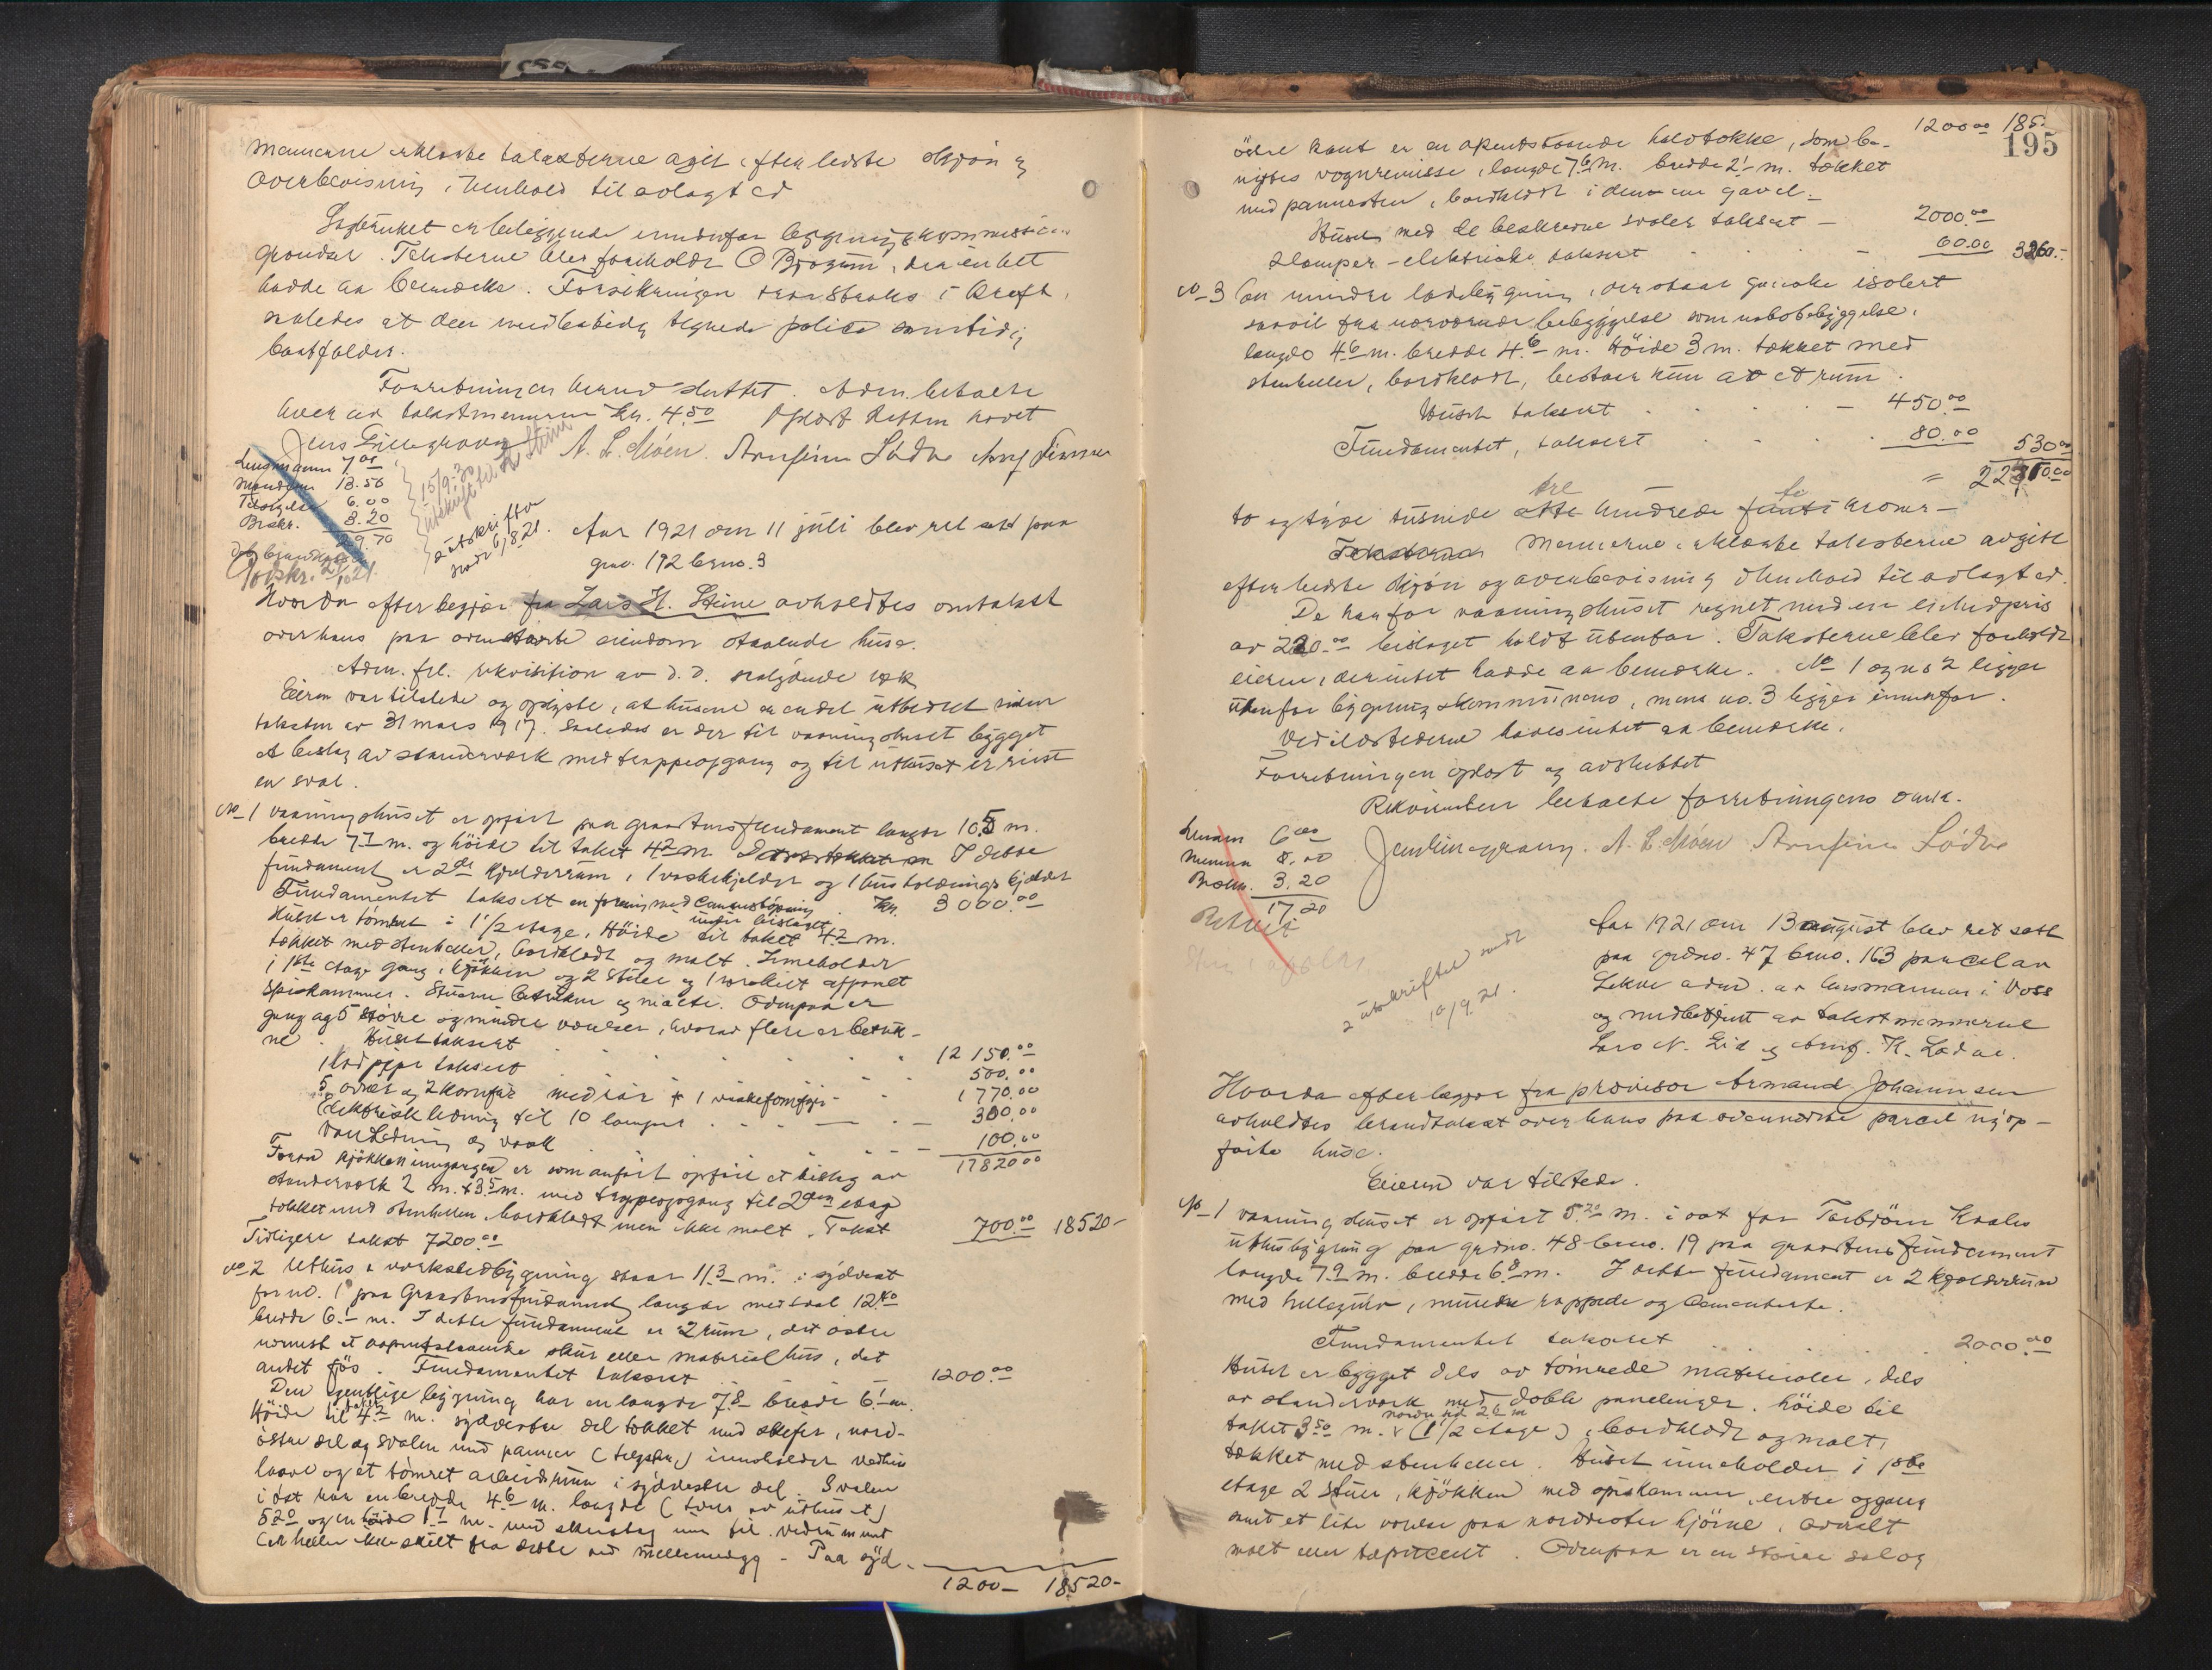 Mænnerne erklærte taksterne avgit efter bedste skjøn og
overbevisning i henhold til avlagt ed
Sagbruket er beliggende indenfor bygningskommissionens
grændser. Taksterne blev foreholdt O Bjørgum, der intet
hadde at bemerke. Forsikringen træ straks i kraft,
saaledes at den midlertidig tegnede police samtidig
bortfalder.
Forretningen herved sluttet. Adm. betalte
hver av takstmennerne kr. 4.50 Oplæst Retten hævet
Jens Lillegraven A. L. Moen. Arnfinn Lødve
Lensmannen 7.00
Mændene 13.50
Tilsigelse 6.00
Brskr. 3.20
29.70
15/9-30
utskrift
2 utskrifter
sendt 6/8 21.
Aar 1921 den 11 juli blev ret sat paa
gno. 192 bruno. 3
Hvorda efter begjær fra Lars H. Steine avholdtes omtakst
over hans paa ovennævnte eiendom staaende huse.
Adm. frl. rekvisition av d. d. saalydende
Eieren var tilstede og oplyste, at husene er endel utbedret siden
taksten av 31 mars 1917. Saaledes er der til vaaningshuset bygget
et beslag av standerverk med trappeopgang og til uthuset er reist
en sval.
No 1 vaaningshuset er opført paa graastensfundament længde 10.5 m.
bredde 7.7 m. og høide til taket 4.2 m. I dette
fundament er 2de kjælderrum, 1 vaskekjælder og 1 husholdnings kjælder
Fundamentet taksert en forening med cementstøpning under beslaget Kr. 3000.00
Huset er tømret i 1 1/2 etage, Høide til taket 4.2 m.
tækket med stenheller, bordklædt og malt. Inneholder
i 1ste etage gang, kjøkken og 2 stuer og 1 værelse avpanelt
spiskammer. Stuerne betrukne og malte. Ovenpaa er
gang og 5 større og mindre værelser, hvorav flere er betruk-
ne. Huset taksert 12 150.00
1 Rødpipe taksert 500.00
5 ovner og 2 komfur med rør + 1 vaskekomfyr 1770.00
Elektrisk ledning til 10 lamper 300.00
Vandledning og vask 100.00
17820.00
Foran kjøkkeninngangen er som anført opført et bislag av
standerverk 2 m. x 3.5 m. med trappeopgang til 2den etage
tækket med stenheller bordklædt men ikke malt. Takst 700.00 18520-
Tidligere takst 7200.00
No 2 Uthus & verkstedbygning staar 11.3 m. i sydvest
for no. 1 paa Graastensfundament længde med sval 12.40
bredde 6.1 m. I dette fundament er 2 rum, det østre
nærmest et aapentstaaende skur eller materialhus, det
andet fjøs. Fundamentet taksert 1200.00
Den egentlige bygning har en længde 7.8 bredde 6.1 m.
Høide til taket 4.2 m. sydvestre del tækket med skifer, nord-
østre del og svalen med panner (teglsten) inneholder vedhus
laave og et tømret arbeidsrum i sydvestre del. Svalen
i øst har en bredde 4.6 m. længde (tvers av uthuset)
5.20 og en høide 1.7 m. med skraatag inn til. vedrummet
er heller ikke skilt fra dette ved mellemvegg - Paa syd-
1200- 18520-
1200.00 185.
195
østre kant er en apentstaaende halvtække, som be-
nyttes vognremisse, længde 7.6 m. bredde 2.1 m. tækket
med pannesten, bordklædt i denne ene gavel.
Huset med de beskrevne svaler taksert - 2000.00
2 lamper - elektriske taksert 60.00 3260.-
No 3 En mindre ladebygning, der staar ganske isolert
saavel fra nærværende bebyggelse som nabobebyggelse.
længde 4.6 m. bredde 4.6 m. Høide 3 m. tækket med
stenheller, bordklædt, bestaar kun av et rum.
Huset taksert 450.00
Fundamentet, taksert 80.00 530.00
= 22310.00
to og tyve tusinde tre hundrede ti kroner-
Mennerne erklærte taksterne avgit
efter bedste skjøn og overbevisning i henhold til avlagt ed.
De har for vaaningshuset regnet med en enhedspris
av 220.00 beslaget holdt utenfor. Taksterne blev foreholdt
eieren, der intet hadde at bemerke. No 1 og no 2 ligger
utenfor bygningskommunens, mens no. 3 ligger innenfor.
Ved ildstederne haves intet at bemerke.
Forretningen oplæst og avsluttet
Rekvirenten betalte forretningens omk.
Lensm 6.00
Mennene 8.00
Brskr. 3.20
17.20
Betalt
Jens Lillegraven. A. L. Moen Arnfinn Lødve
2 utskrifter sendt
10/9 21.
Aar 1921 den 13 august blev ret satt
paa grdno. 47 bruno. 163 parcel av
Lekve adm. av lensmannen i Voss
og medbetjent av takstmennerne
Lars N. Lid og Arnf. K. Lødve.
Hvorda efter begjær fra provisor Armand Johannesen
avholdtes brandtakst over hans paa ovennævnte parcel nyop-
førte huse.
Eieren var tilstede.
No 1 vaaningshuset er opført 5.20 m. i øst for Torbjørn Kvales
uthusbygning paa grdno. 48 bruno. 19 paa graastensfundament
længde 7.9 m. bredde 6.8 m. I dette fundament er 2 kjælderrum
med hellegulv, murene rappede og Cementerte.
Fundamentet taksert 2000.00
Huset er bygget dels av tømrede materialer, dels
av standerverk med dobb panelinger. høide til
taket 3.50 m. (1 1/2 etage), bordklædt og malt,
tækket med stenheller. Huset inneholder i 1ste
etage 2 stuer, kjøkken med spiskammer, entre og gang
samt et lite værelse paa nordvestre hjørne, overalt
malt eller tapetsert. Ovenpaa er en større sal og